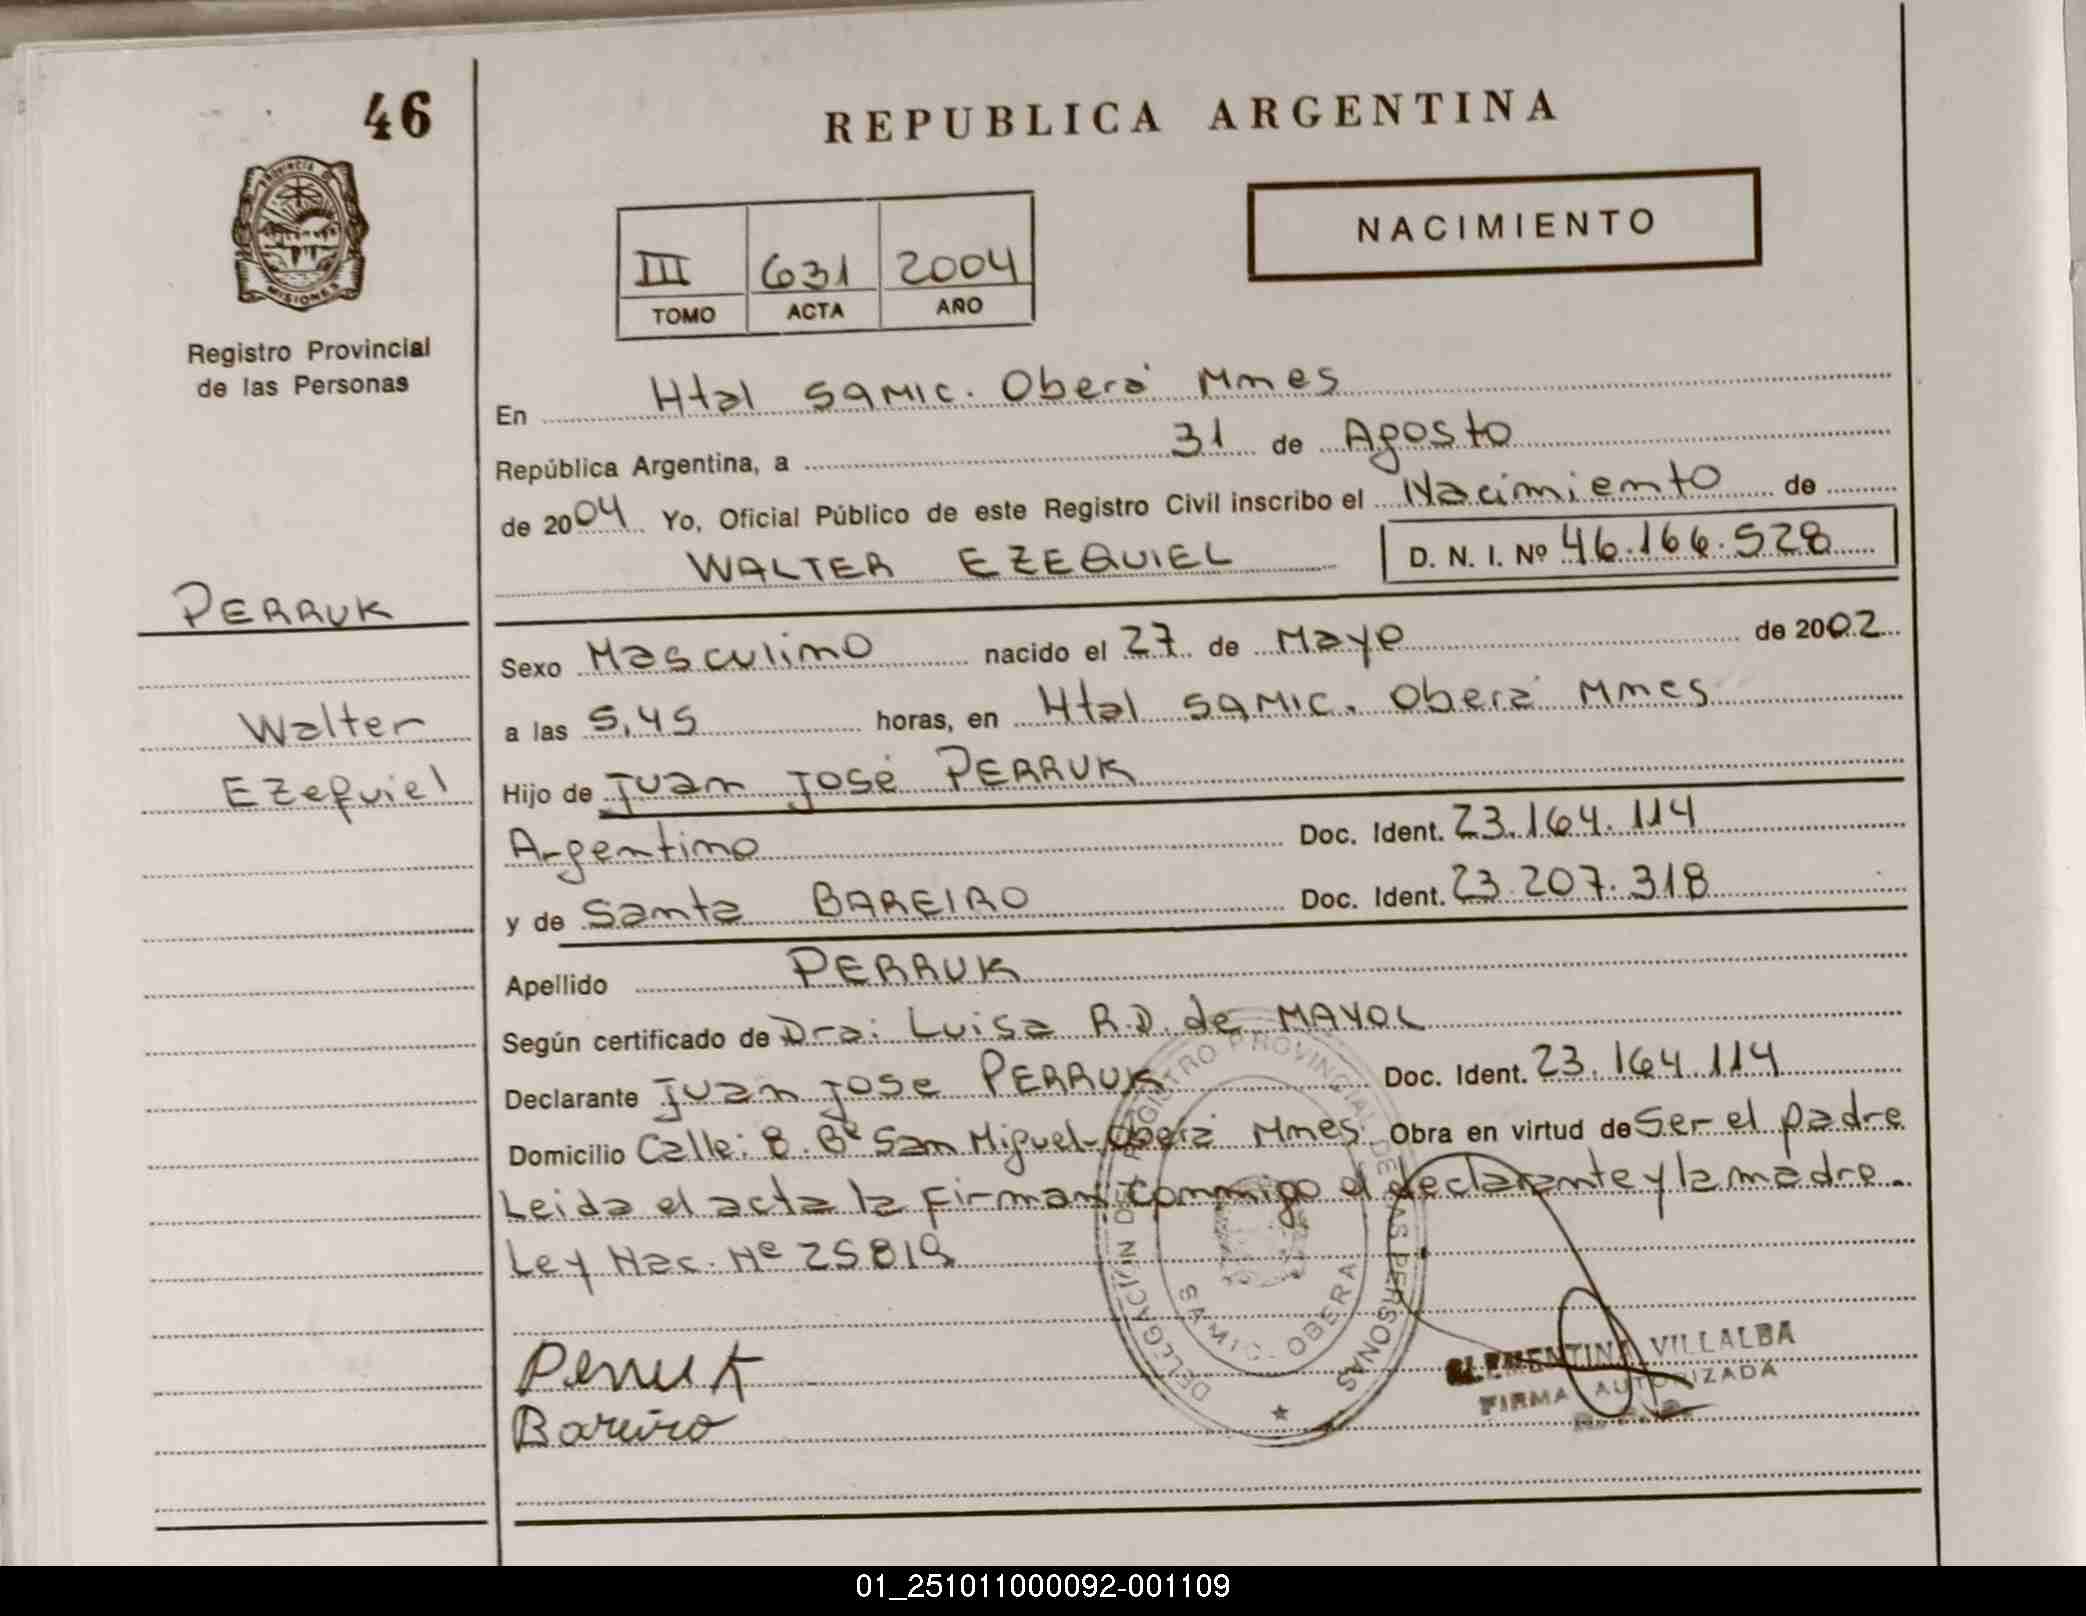 46
REPUBLICA ARGENTINA
PROVINCIA D
MISIONES
NACIMIENTO
III 631 2004
TOMO ACTA AÑO
Registro Provincial
de las Personas
En Htal SAMIC. Oberá Mnes
República Argentina, a 31 de Agosto
de 2004 Yo, Oficial Público de este Registro Civil inscribo el Nacimiento de
WALTER EZEQUIEL D. N. I. Nº 46.166.528
PERRUK
Walter
Ezequiel
Sexo Masculino nacido el 27 de Mayo de 2002
a las 5,45 horas, en Htal SAMIC. Oberá Mnes
Hijo de Juan José PERRUK
Argentino Doc. Ident. 23.164.114
y de Santa BAREIRO Doc. Ident. 23.207.318
Apellido PERRUK
Según certificado de Dra: Luisa R.D. de MAYOL
Declarante Juan Jose PERRUK Doc. Ident. 23.164.114
Domicilio Calle: 8. Bº San Miguel-Oberá Mnes. Obra en virtud de Ser el padre
Leida el acta la firman conmigo el declarante y la madre.
Ley Nac. Nº 25819
DELEGACIÓN DEL REGISTRO PROVINCIAL DE LAS PERSONAS
SAMIC - OBERA
Perruk
Bareiro
CLEMENTINA VILLALBA
FIRMA AUTORIZADA
01_251011000092-001109